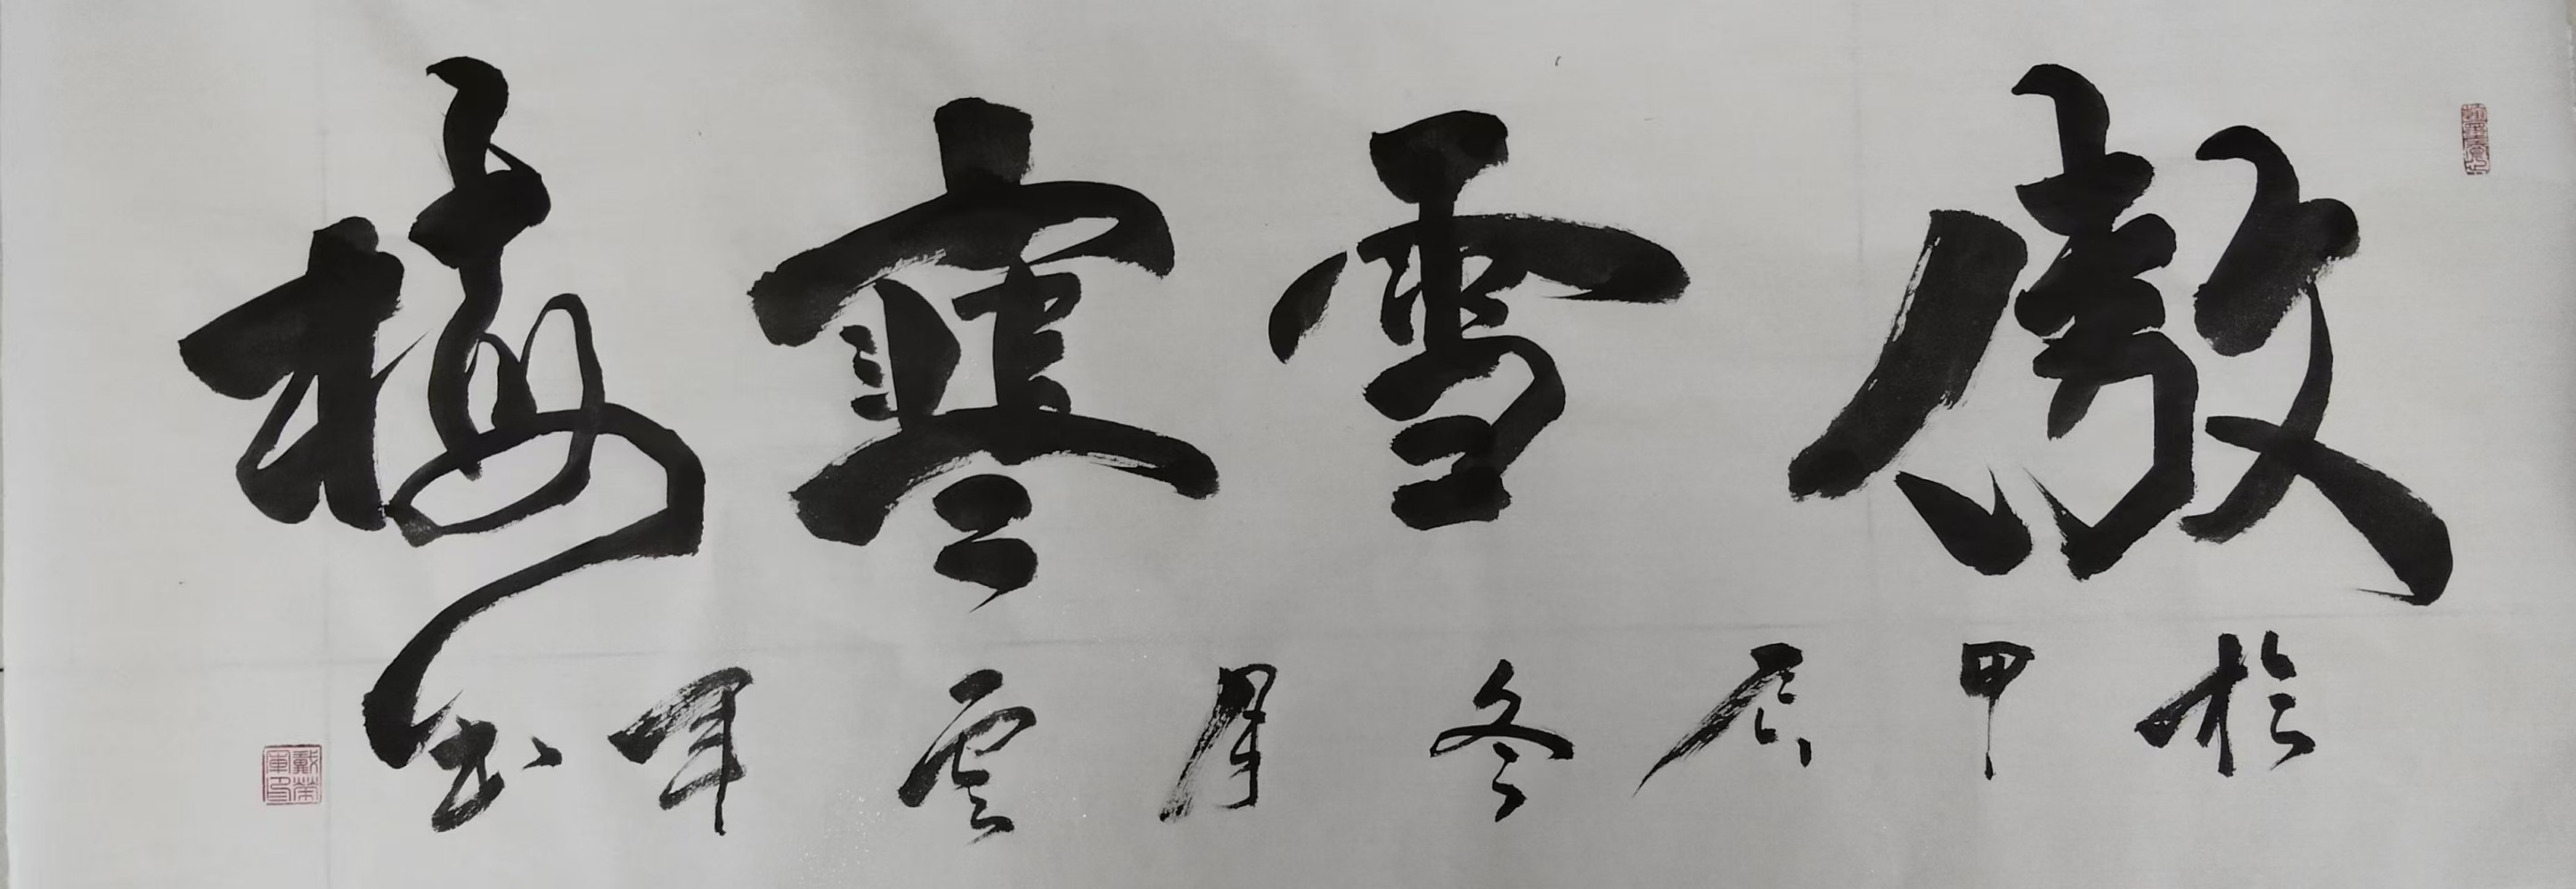 傲雪寒梅
於甲辰冬月云軍书
戴榮軍印